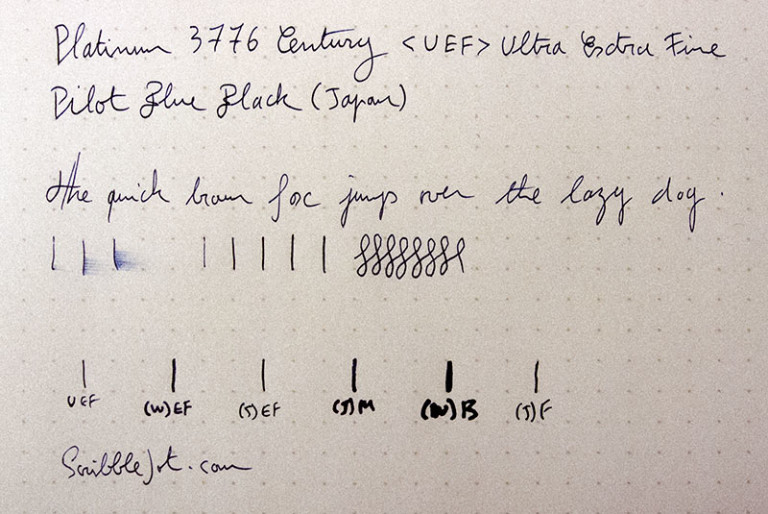 Platinum 3776 Century <UEF> Ultra Extra Fine
Pilot Blue Black (Japan)
the quick brown fox jumps over the lazy dog.
UEF (W)EF (J)EF (J)M (W)B (J)F
ScribbleJot.com